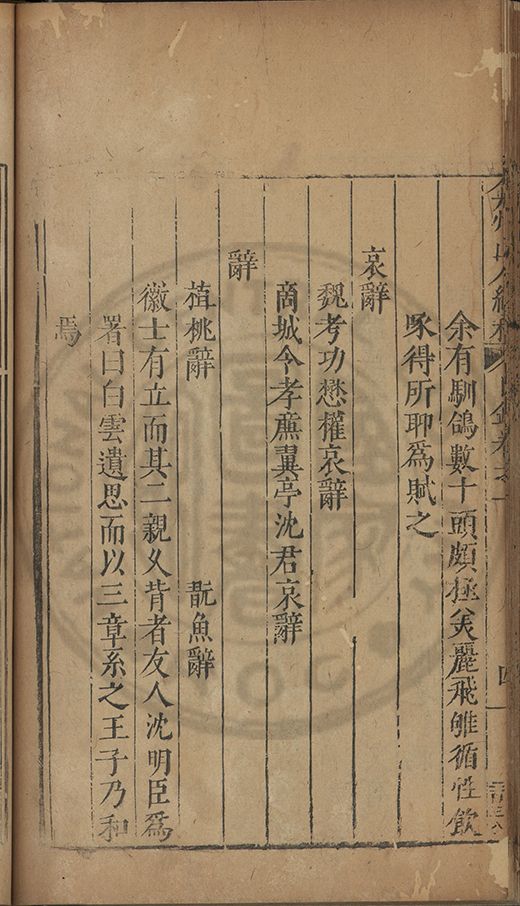 弇州山人續稿 目錄卷之一 四
余有馴鴿數十頭頗極美麗飛雊循性飲
啄得所聊爲賦之
哀辭
魏考功懋權哀辭
商城令孝廉翼亭沈君哀辭
辭
植桃辭 翫魚辭
徽士有立而其二親乆背者友人沈明臣爲
署曰白雲遺思而以三章系之王子乃和
焉